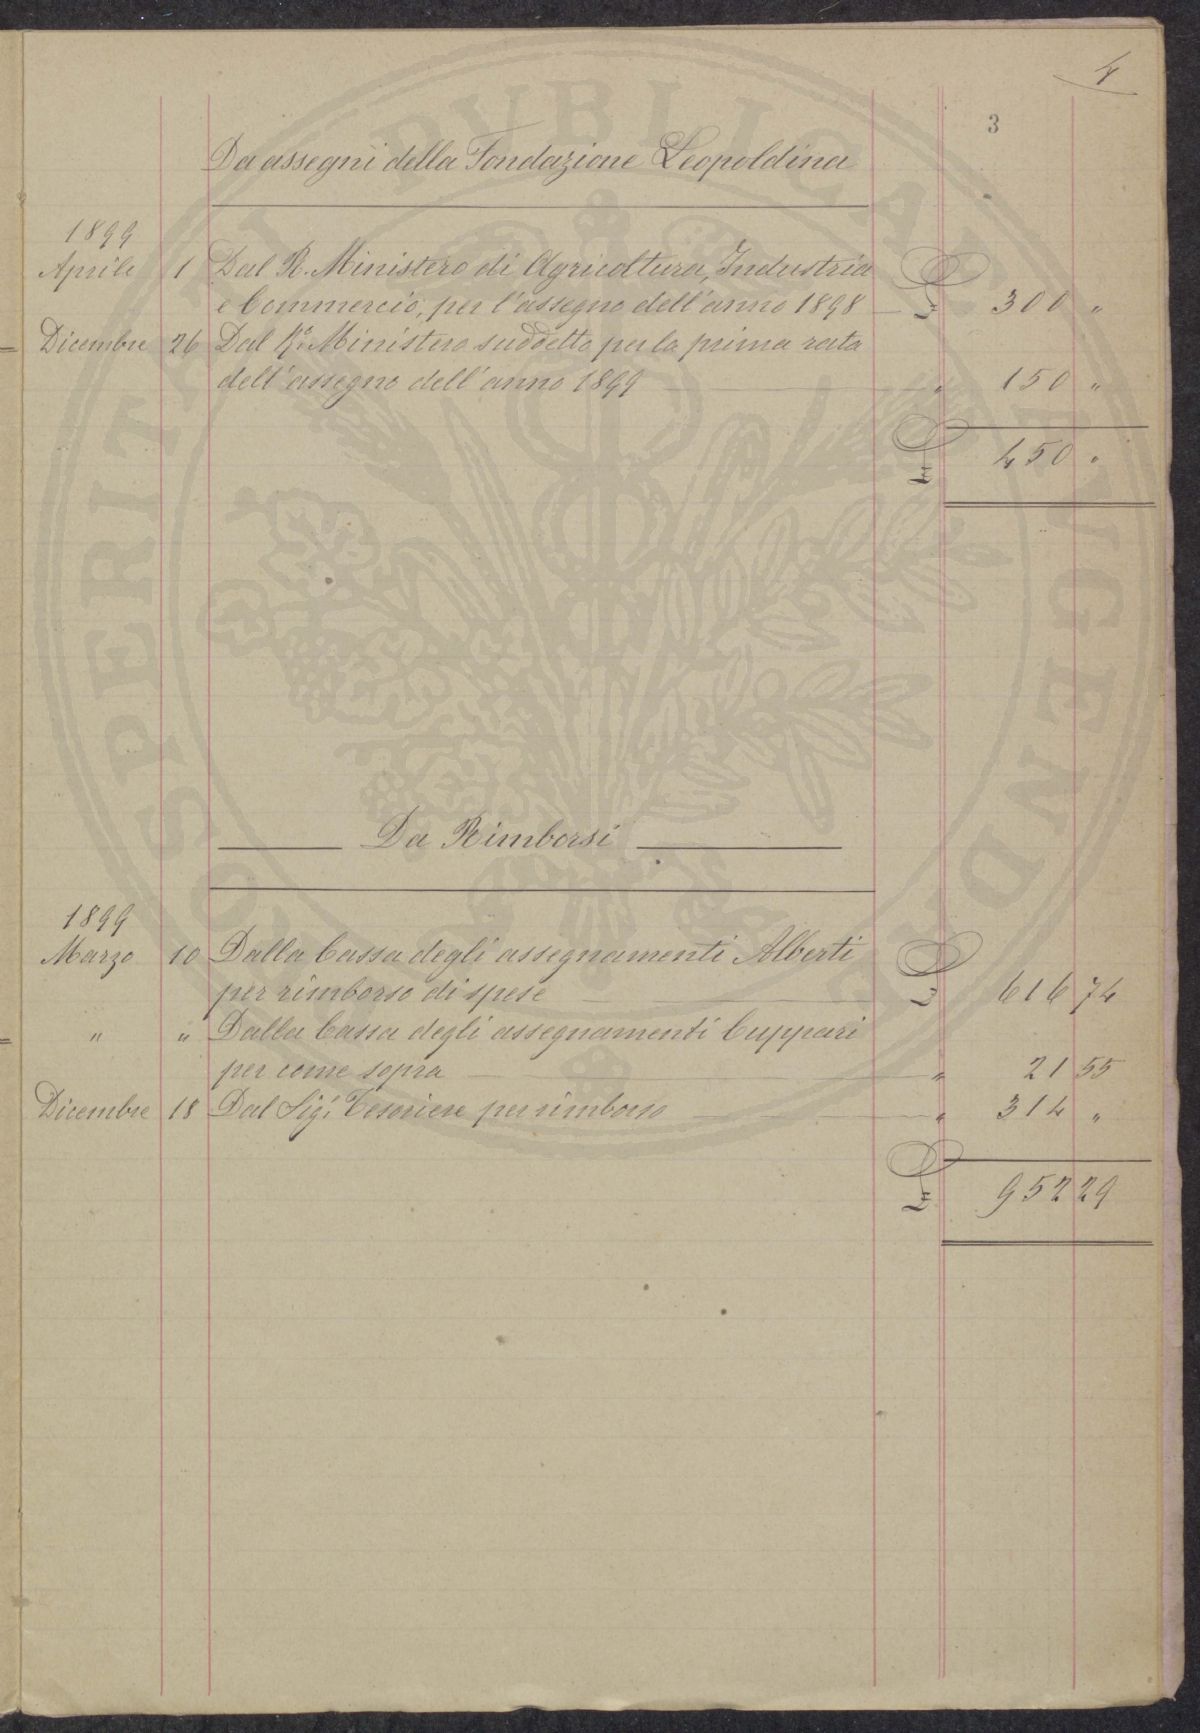 4
3
Da assegni della Fondazione Leopoldina
1899
Aprile 1 Dal R. Ministero di Agricoltura, Industria
e Commercio, per l'assegno dell'anno 1898 — £ 300 "
Dicembre 26 Dal R.º Ministero suddetto per la prima rata
dell'assegno dell'anno 1899 " 150 "
£ 450 "
Da Rimborsi
1899
Marzo 10 Dalla Cassa degli assegnamenti Alberti
per rimborso di spese — £ 616 74
" " Dalla Cassa degli assegnamenti Cuppari
per come sopra — " 21 55
Dicembre 18 Dal Sig. Tesoriere per rimborso — " 314 "
£ 952 29
PROSPERITATI PVBLICAE AVGENDAE